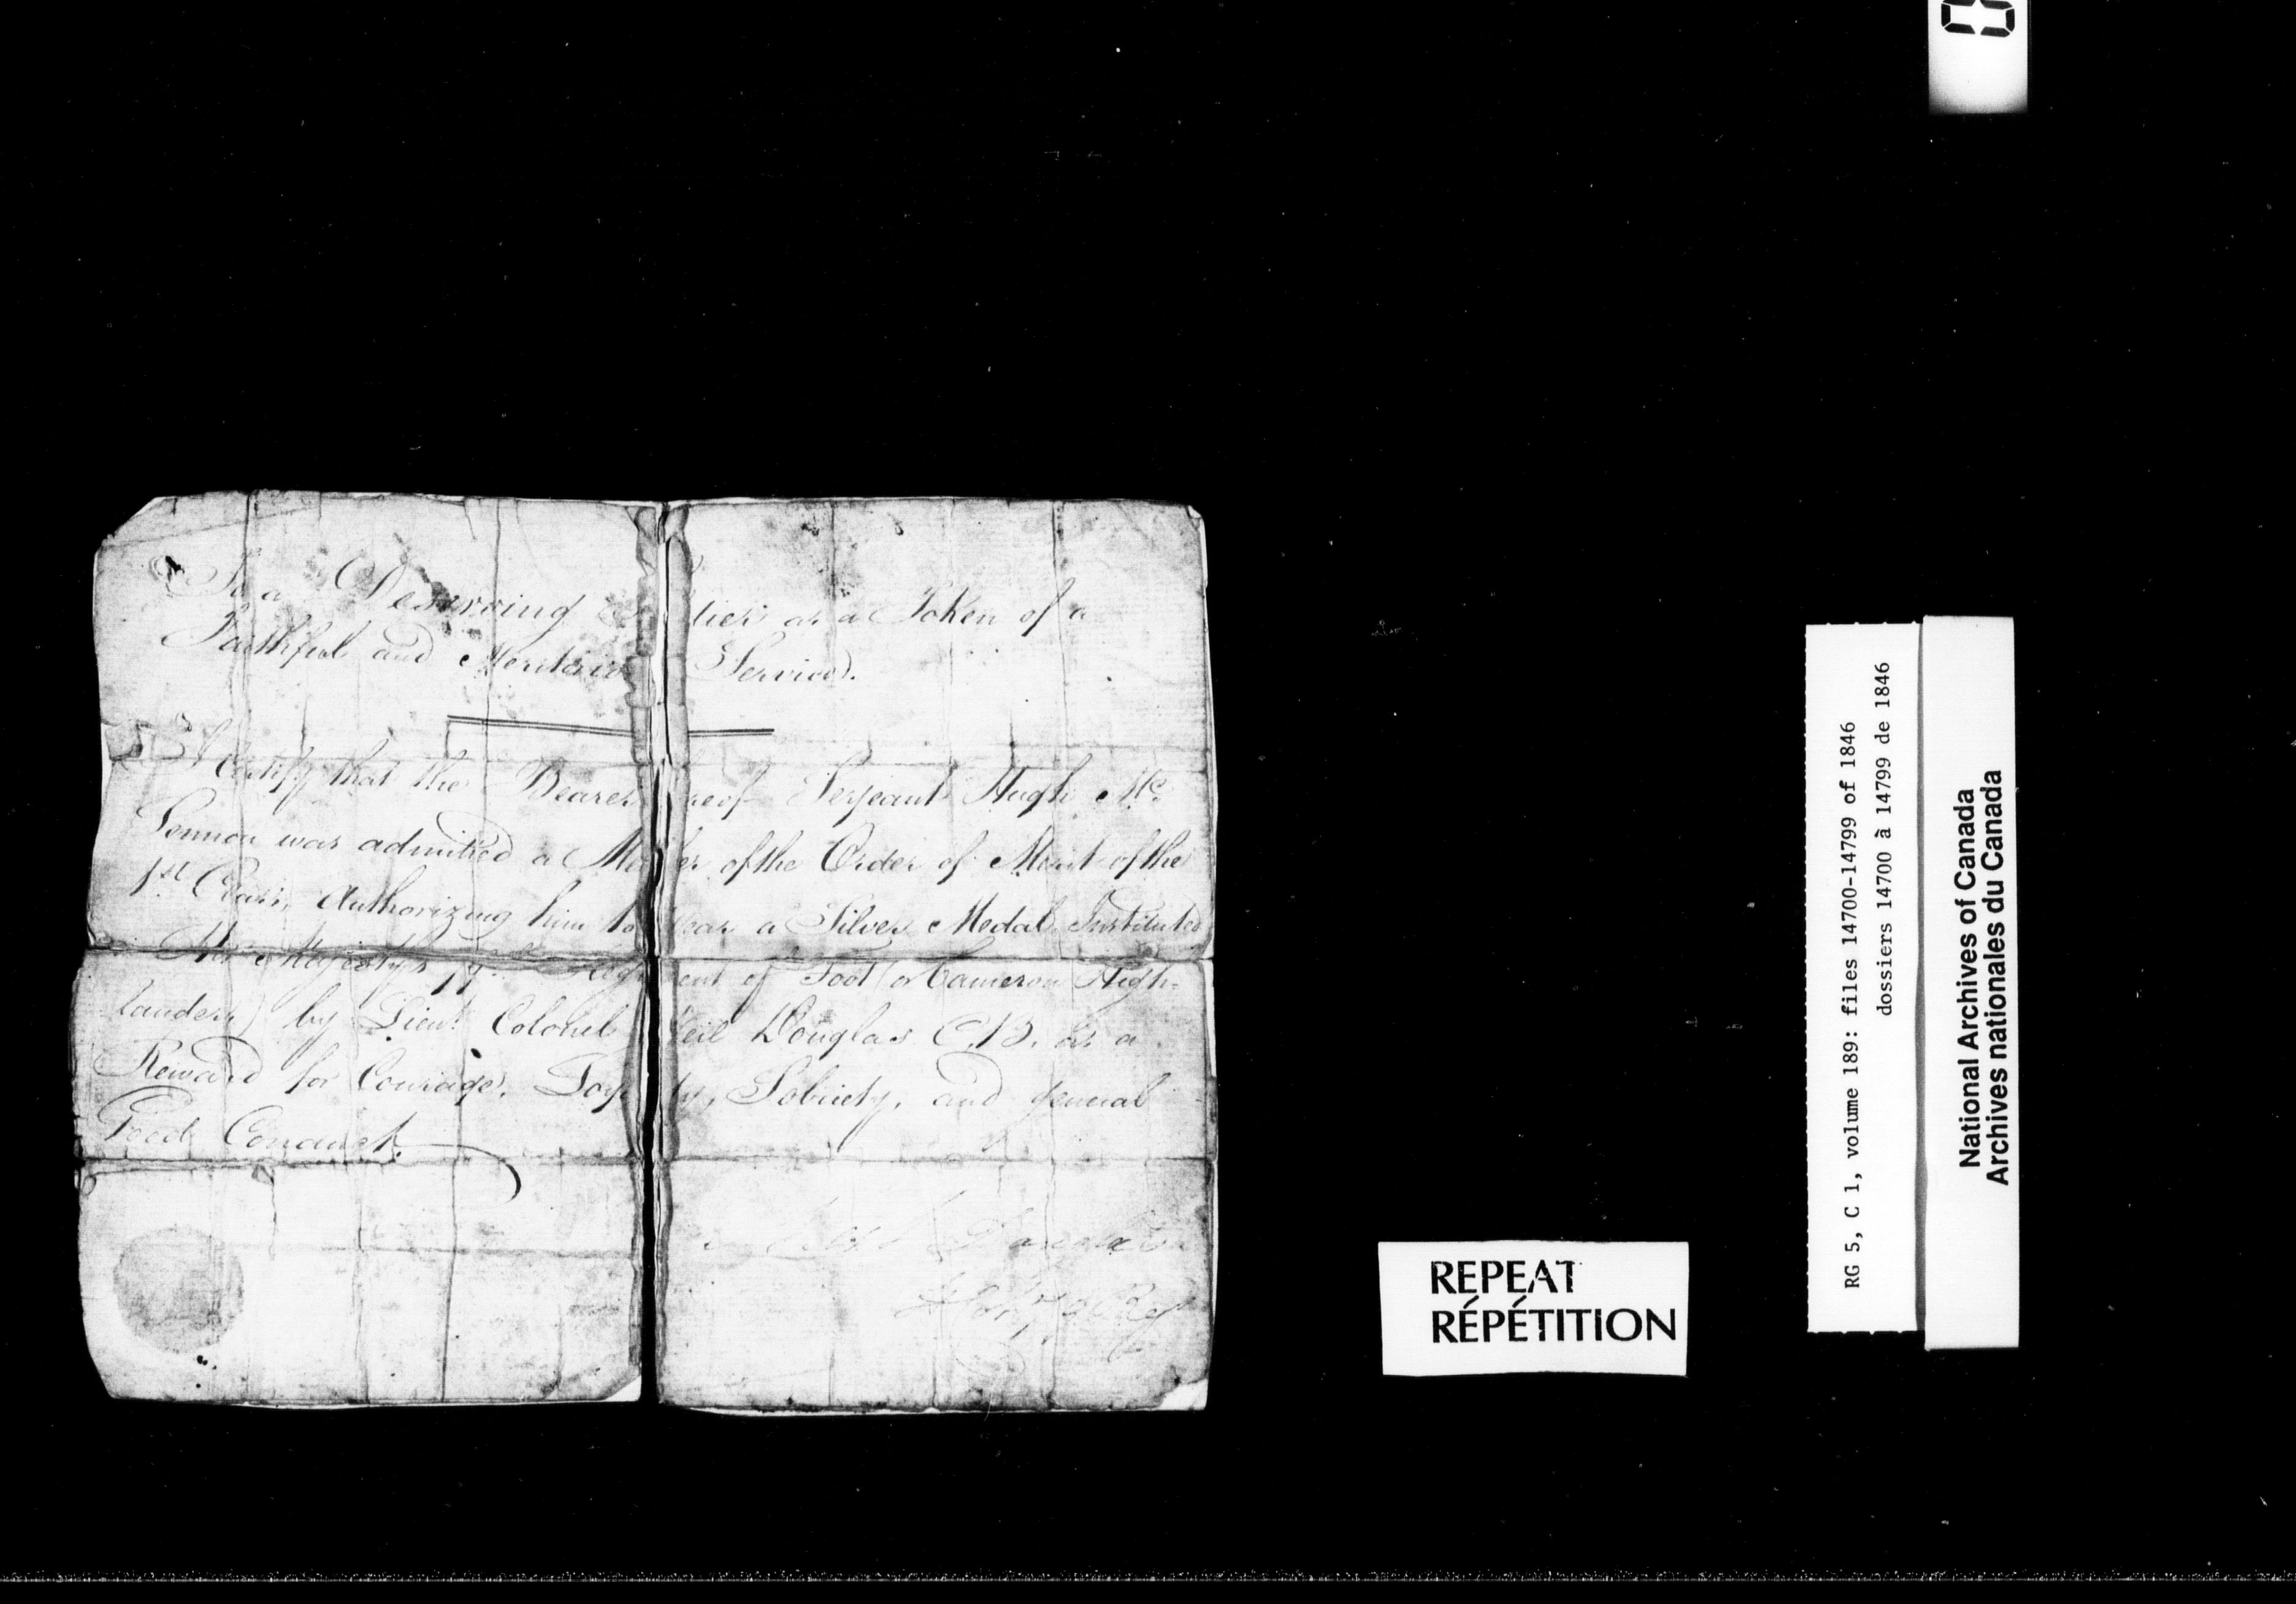 To a Deserving S ldier as a Token of a
Faithful and Meritorio Service.
I Certify that the Bearer reof Serjeant Hugh Mc
Lennon was admitted a Me ber of the Order of Merit of the
1st Class, Authorizing him to Wear a Silver Medal Instituted
His Majesty's 79th Regi ment of Foot (or Cameron High-
landers) by Lieut Colonel Neil Douglas C.B. as a
Reward for Courage, Loy lty, Sobriety, and general
Good Conduct.
Douglas
REPEAT
RÉPÉTITION
RG 5, C 1, volume 189: files 14700-14799 of 1846
dossiers 14700 à 14799 de 1846
National Archives of Canada
Archives nationales du Canada